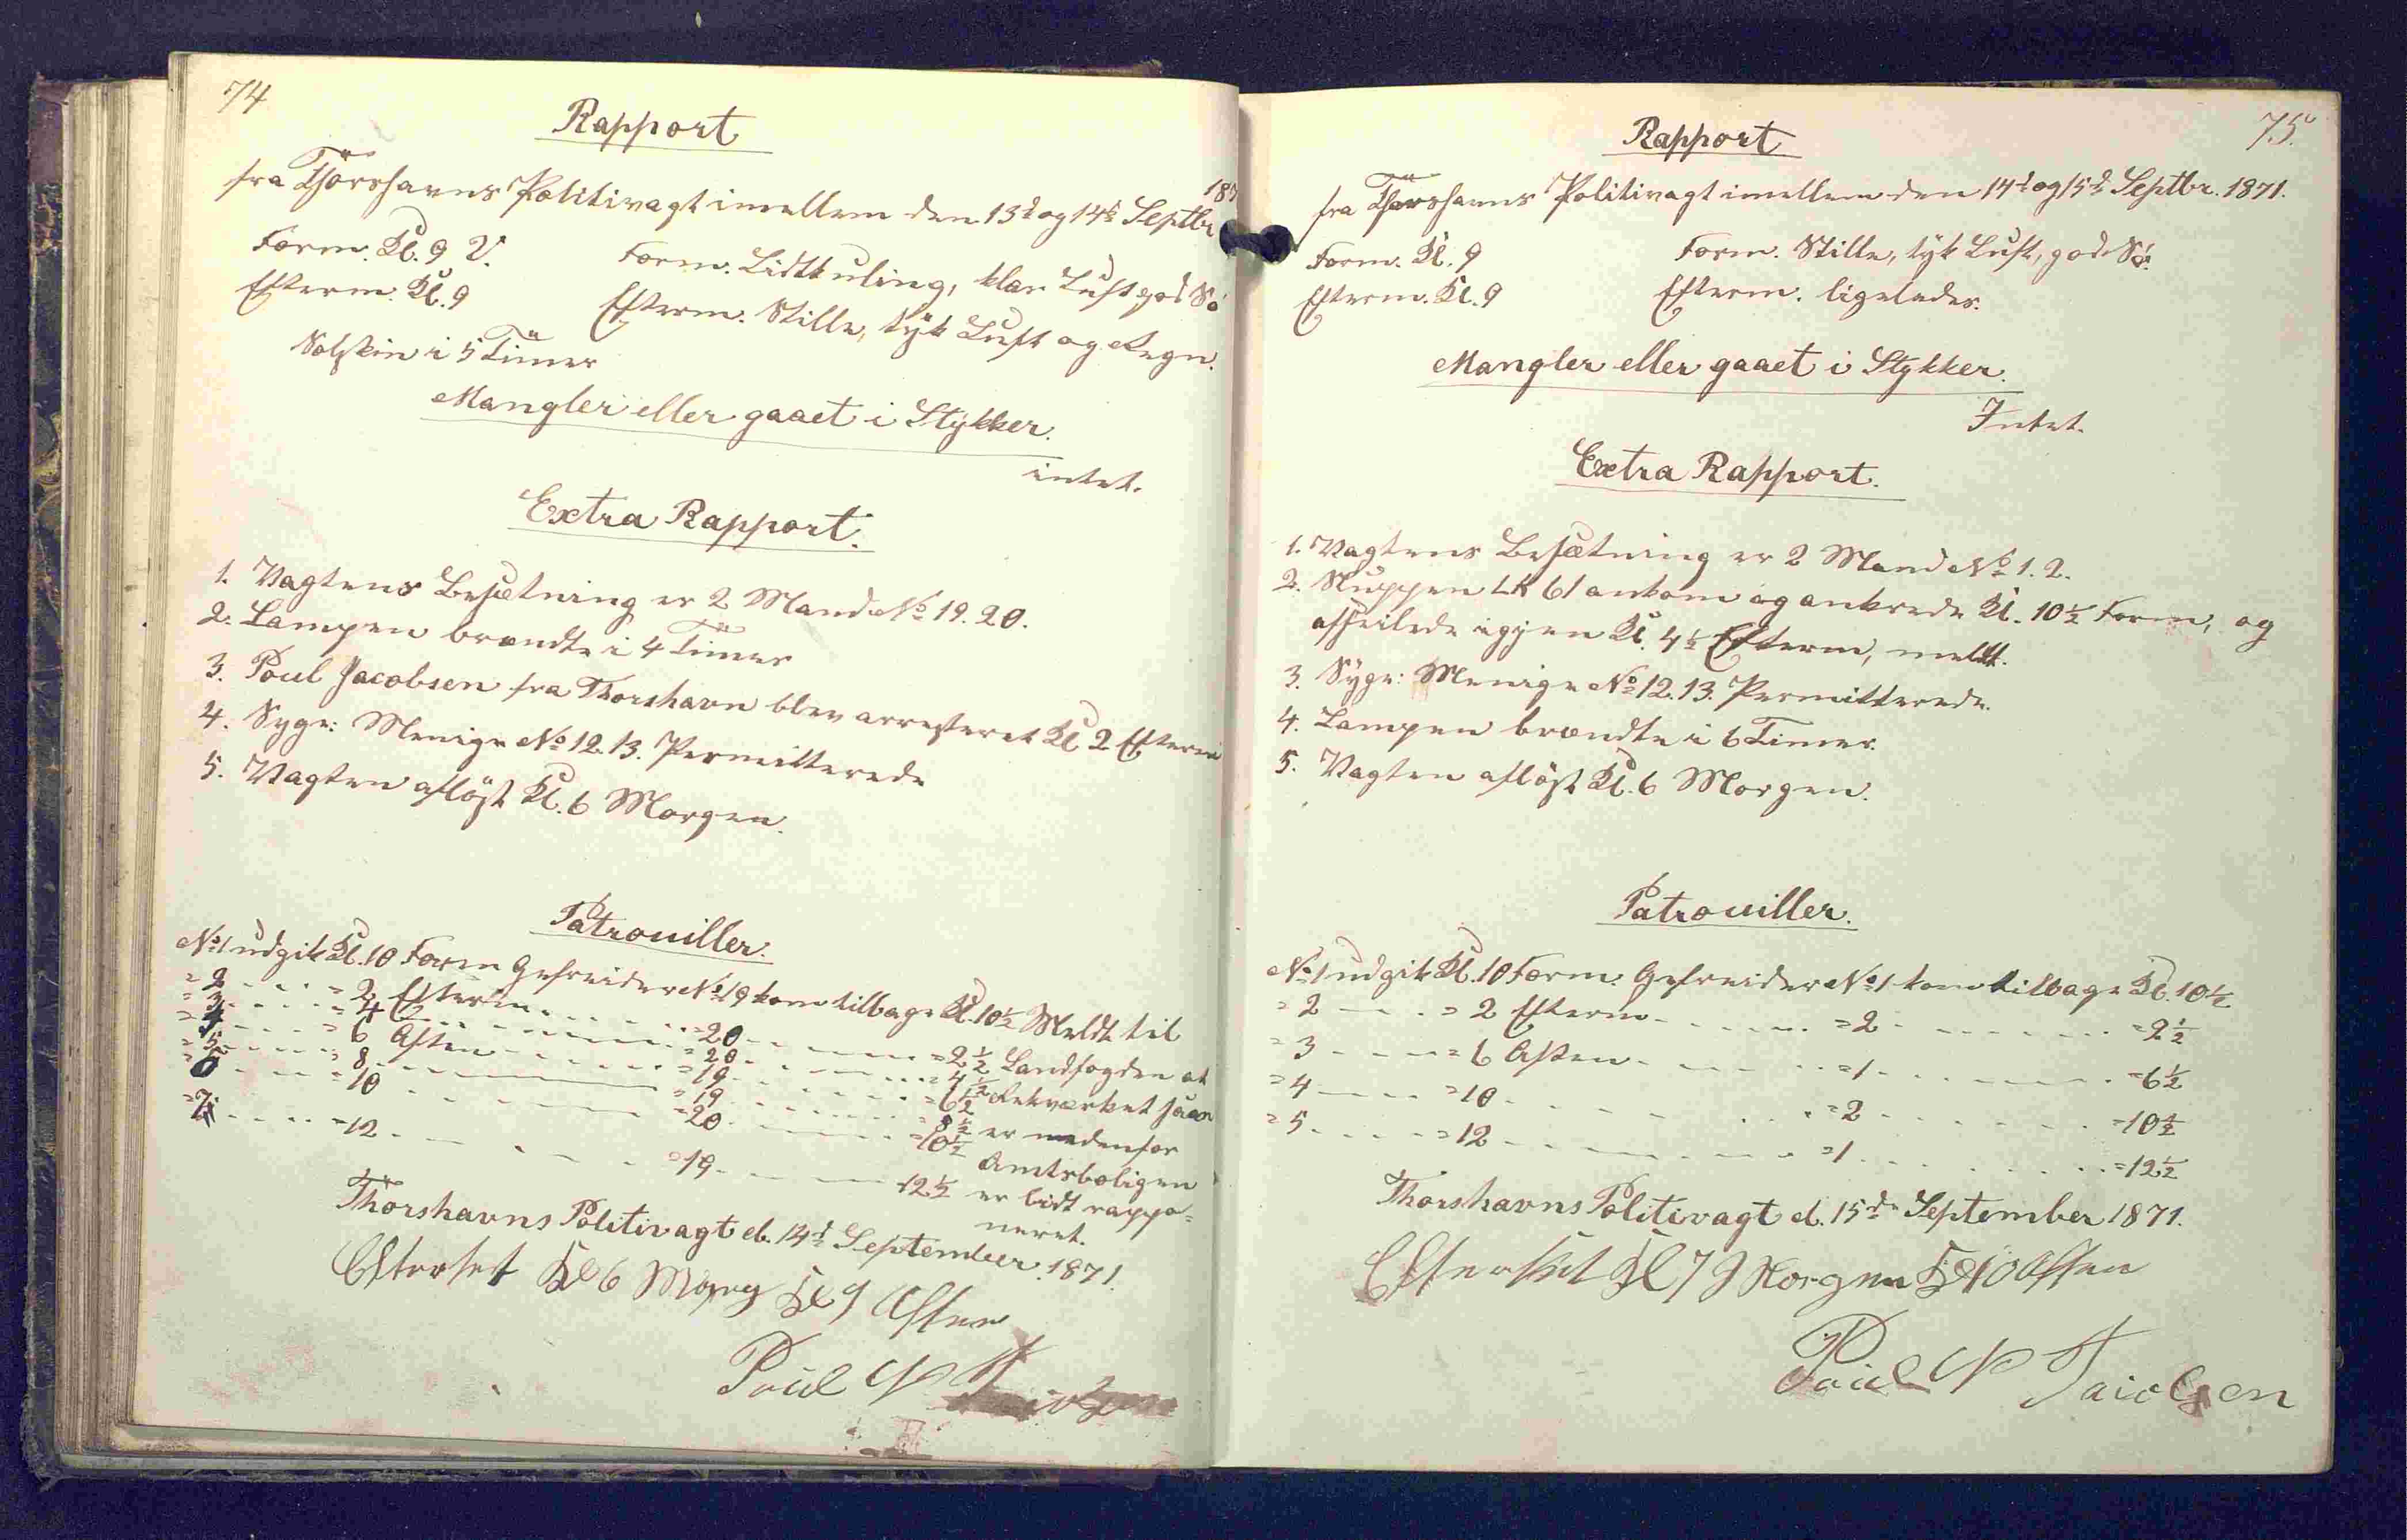 74
Rapport
fra Thorshavns Politivagt imellem den 13d og 14d Septbr 187
Form. Kl. 9 V.
Form. Lidt kuling, klar Luft god Sö
Efterm. Kl. 9
Efterm. Stille, tyk Luft og Regn.
Solskin i 5 Timer
Mangler eller gaaet i Stykker.
intet.
Extra Rapport.
1. Vagtens Besætning er 2 Mand No 19. 20.
2. Lampen brændte i 4 Timer
3. Poul Jacobsen fra Thorshavn blev arresteret Kl 2 Efterm
4. Syge: Menige No 12. 13. Permitterede
5. Vagten aflöst Kl. 6 Morgen.
Patrouiller.
No 1 udgik Kl. 10 Form Gefreider No 19 kom tilbage Kl. 10½ Meldt til
= 2 = 2 Efterm = 20 = 2½ Landfogden at
= 3 = 4 = 20 = 4½ Rekværket som
= 4 = 6 Aften = 19 = 6½ er nedenfor
= 5 = 8 = 19 = 8½ Amtsboligen
= 6 = 10 = 20 = 10½ er lidt rappo=
= 7 = 12 = 19 12½ neret.
Thorshavns Politivagt d. 14d September 1871.
Efterset Kl 6 Morg Kl 9 Aften
Poul N
75.
Rapport
fra Thorshavns Politivagt imellem den 14d og 15d Septbr. 1871.
Form. Kl. 9
Form. Stille, tyk Luft, god Sö.
Efterm. Kl. 9
Efterm. ligeledes.
Mangler eller gaaet i Stykker.
Intet.
Extra Rapport.
1. Vagtens Besætning er 2 Mand No 1. 2.
2. Sluppen LK 61 ankom og ankrede Kl. 10½ Form, og
afseilede igjen Kl. 4½ Efterm, meldt.
3. Syge: Menige No 12. 13. Permitterede.
4. Lampen brændte i 6 Timer.
5. Vagten aflöst Kl. 6 Morgen.
Patrouiller.
No 1 udgik Kl. 10 Form. Gefreider No 1 kom tilbage Kl. 10½
= 2 = 2 Efterm = 2 = 2½
= 3 = 6 Aften = 1 = 6½
= 4 = 10 = 2 = 10½
= 5 = 12 = 1 = 12½
Thorshavns Politivagt d. 15de September 1871.
Efterset Kl 7 Morgen Kl 10 Aften
Poul N